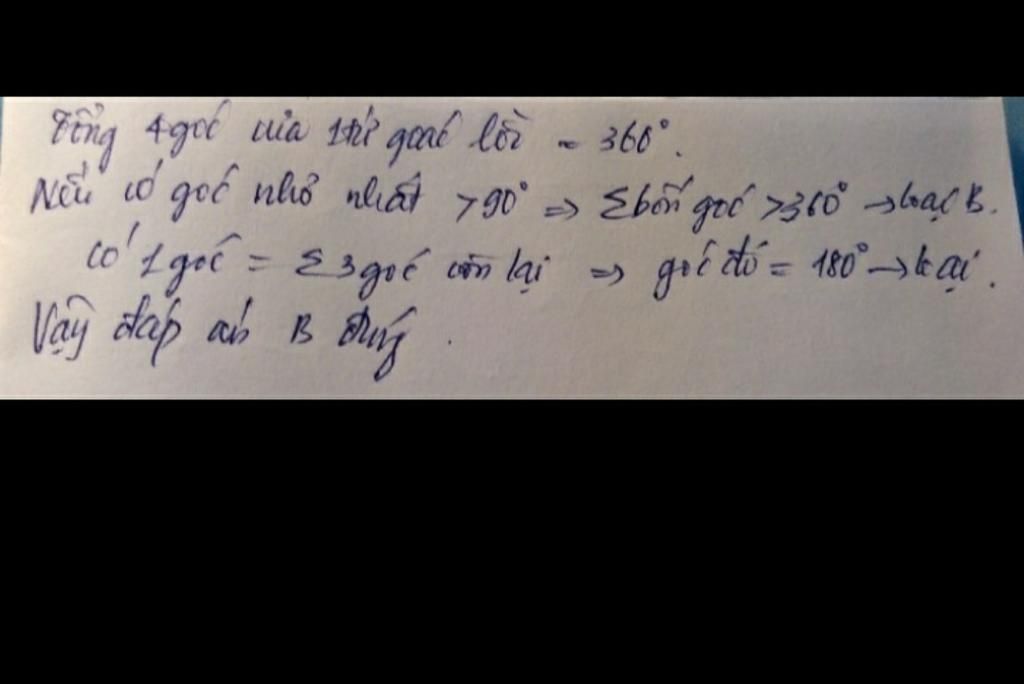 Tổng 4 góc của 1 tứ goác lồi = 360°.
Nếu có góc nhỏ nhất >90° => Σ bốn góc >360° → loại B.
Có 1 góc = Σ 3 góc còn lại => góc đó = 180° → loại.
Vậy đáp án B đúng.